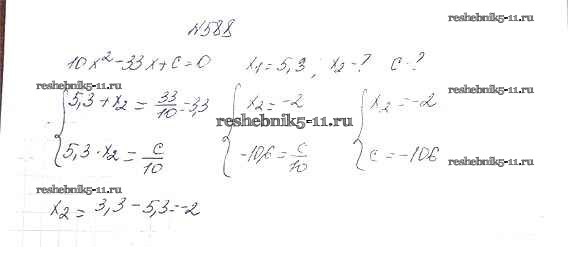 №588
reshebnik5-11.ru
10x² - 33x + c = 0   x₁ = 5,3 ; x₂ - ?   c - ?
reshebnik5-11.ru
reshebnik5-11.ru
{ 5,3 + x₂ = 33/10 = 3,3   { x₂ = -2   { x₂ = -2
reshebnik5-11.ru
{ 5,3 · x₂ = c/10   { -10,6 = c/10   { c = -106
reshebnik5-11.ru
reshebnik5-11.ru
x₂ = 3,3 - 5,3 = -2